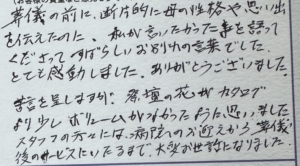 葬儀の前に、断片的に母の性格や思い出
を伝えたのに、私が言いたかった事を語って
くださってすばらしいお別れの言葉でした。
とても感動しました。ありがとうございました。
苦言を呈しますが、祭壇の花がカタログ
より少しボリュームがなかったように思いました
スタッフの方々には、病院へのお迎えから葬儀
後のサービスにいたるまで、大変お世話になりました。